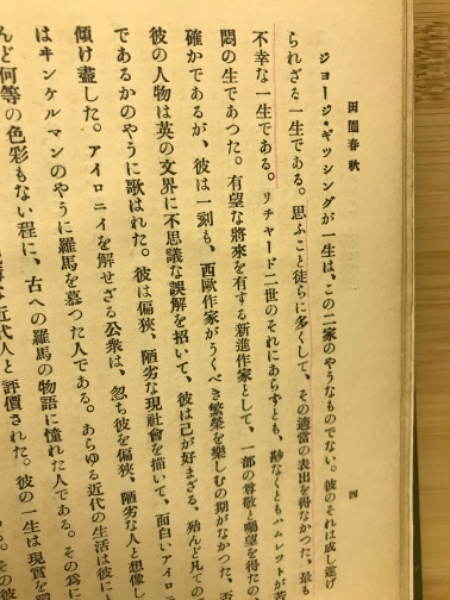 田園春秋
四
ジョージ・ギッシングが一生は、この二家のやうなものでない。彼のそれは成し遂げ
られざる一生である。思ふこと徒らに多くして、その適當の表出を得なかつた、最も
不幸な一生である。リチャード二世のそれにあらずとも、尠なくともハムレットが苦
悶の生であつた。有望な將來を有する新進作家として、一部の尊敬と囑望を得たの
確かであるが、彼は一刻も、西歐作家がうくべき繁榮を樂しむの期がなかつた、否
彼の人物は英の文界に不思議な誤解を招いて、彼は己が好まざる、殆んど凡ての
であるかのやうに歌はれた。彼は偏狹、陋劣な現社會を描いて、面白いアイロ
傾け盡した。アイロニイを解せざる公衆は、忽ち彼を偏狹、陋劣な人と想像し
はヰンケルマンのやうに羅馬を慕つた人である。あらゆる近代の生活は彼に
んど何等の色彩もない程に、古への羅馬の物語に憧れた人である。その爲に
近代人と評價された。彼の一生は現實を
その彼